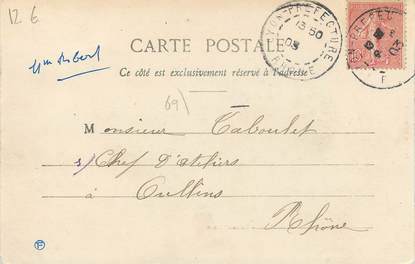 12 6
CARTE POSTALE
Ce côté est exclusivement réservé à l'adresse
LYON-PREFECTURE
13 50
03
RHONE
69\
Monsieur Taboulet
s/ Chef d'ateliers
à Oullins
Rhône